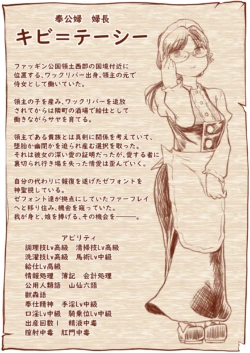 奉公婦　婦長
キビ＝テーシー
ファッギン公国領土西部の国境付近に
位置する、ワックリバー出身。領主の元で
侍女として働いていた。
領主の子を産み、ワックリバーを追放
されてからは隣町の酒場で給仕として
働きながらサヤを育てる。
領主である貴族とは真剣に関係を考えていて、
堕胎か幽閉かを迫られ産む選択を取った。
それは彼女の深い愛の証明だったが、愛する者に
裏切られ行き場を失った情愛は歪んでいく。
自分の代わりに報復を遂げたゼフォントを
神聖視している。
ゼフォント達が拠点にしていたファーフレイ
へと移り住み、機会を窺っていた。
我が身と、娘を捧げる、その機会を――。
アビリティ
調理技Lv高級　清掃技Lv高級
洗濯技Lv高級　馬術Lv中級
給仕Lv高級
情報処理　簿記　会計処理
公用人類語　山仙六語
獣森語
奉仕精神　手淫Lv中級
口淫Lv中級　騎乗位Lv中級
出産回数1　精液中毒
搾精中毒　肛門中毒